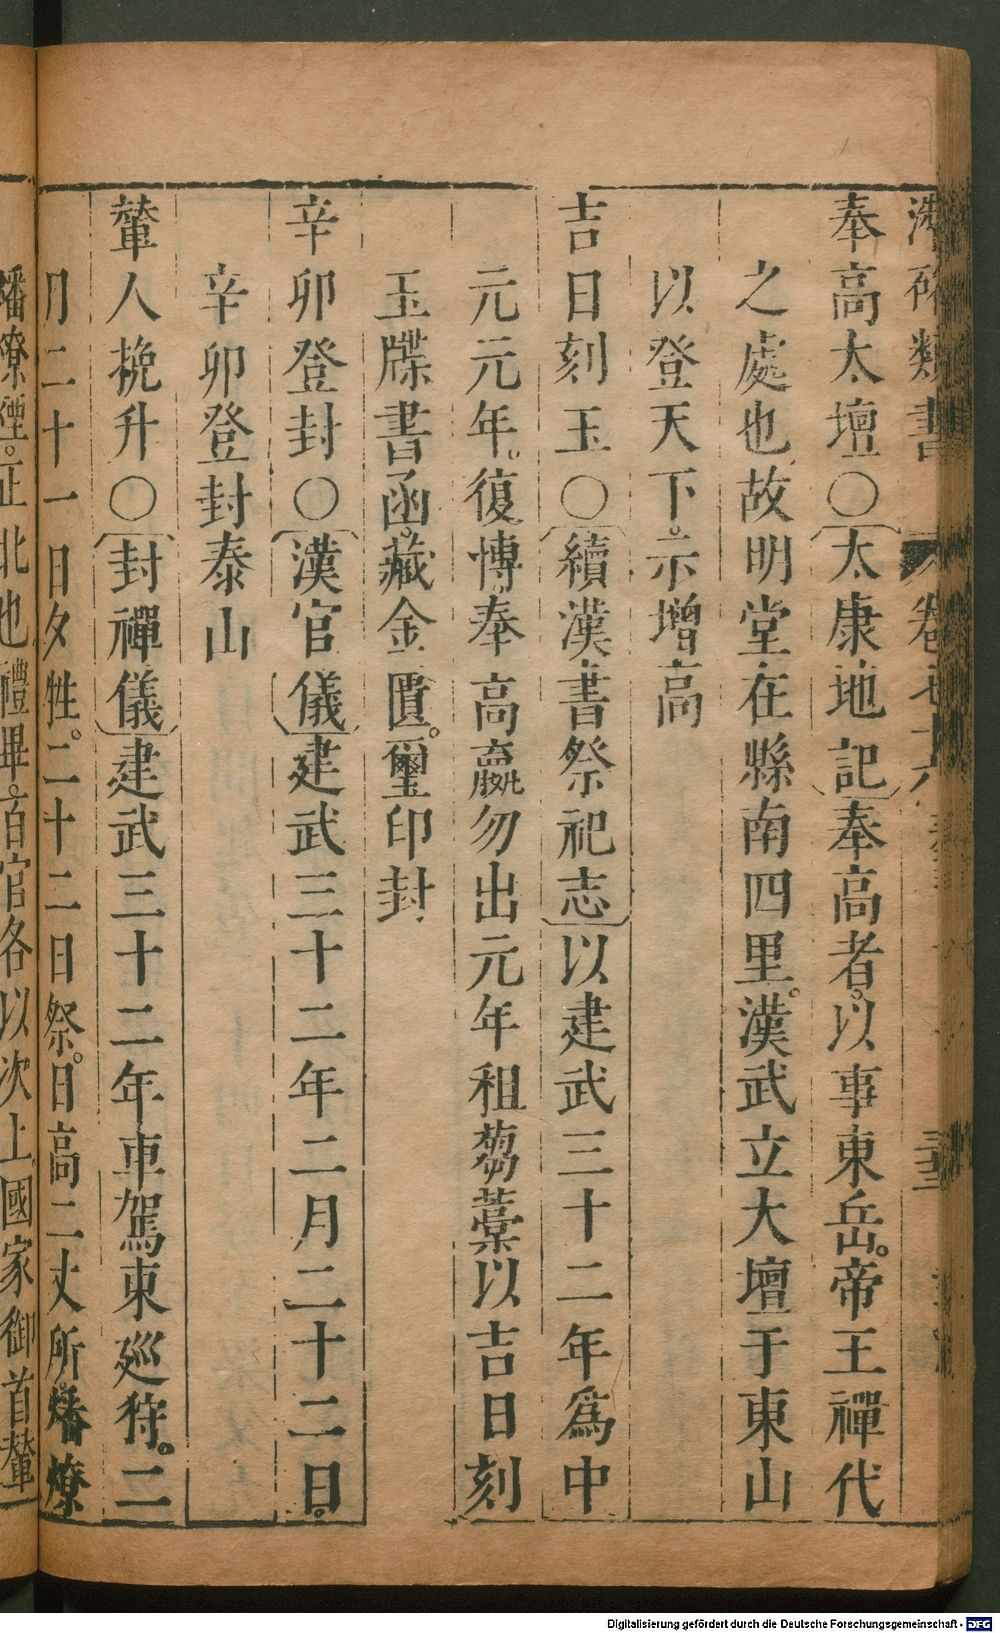 類書
奉高太壇○太康地記奉高者。以事東岳。帝王禪代
之處也故明堂在縣南四里。漢武立大壇于東山
以登天下。示增高
吉日刻玉○續漢書祭祀志以建武三十二年為中
元元年。復博奉高嬴勿出元年租芻藁以吉日刻
玉牒書函。藏金匱。璽印封
辛卯登封○漢官儀建武三十二年二月二十二日。
辛卯登封泰山
輦人挽升○封禪儀建武三十二年車駕東巡狩。二
月二十一日夕牲。二十二日祭。日高二丈所。燔燎
燔燎煙。正北也禮畢。百官各以次上國家御首輦
Digitalisierung gefördert durch die Deutsche Forschungsgemeinschaft - DFG